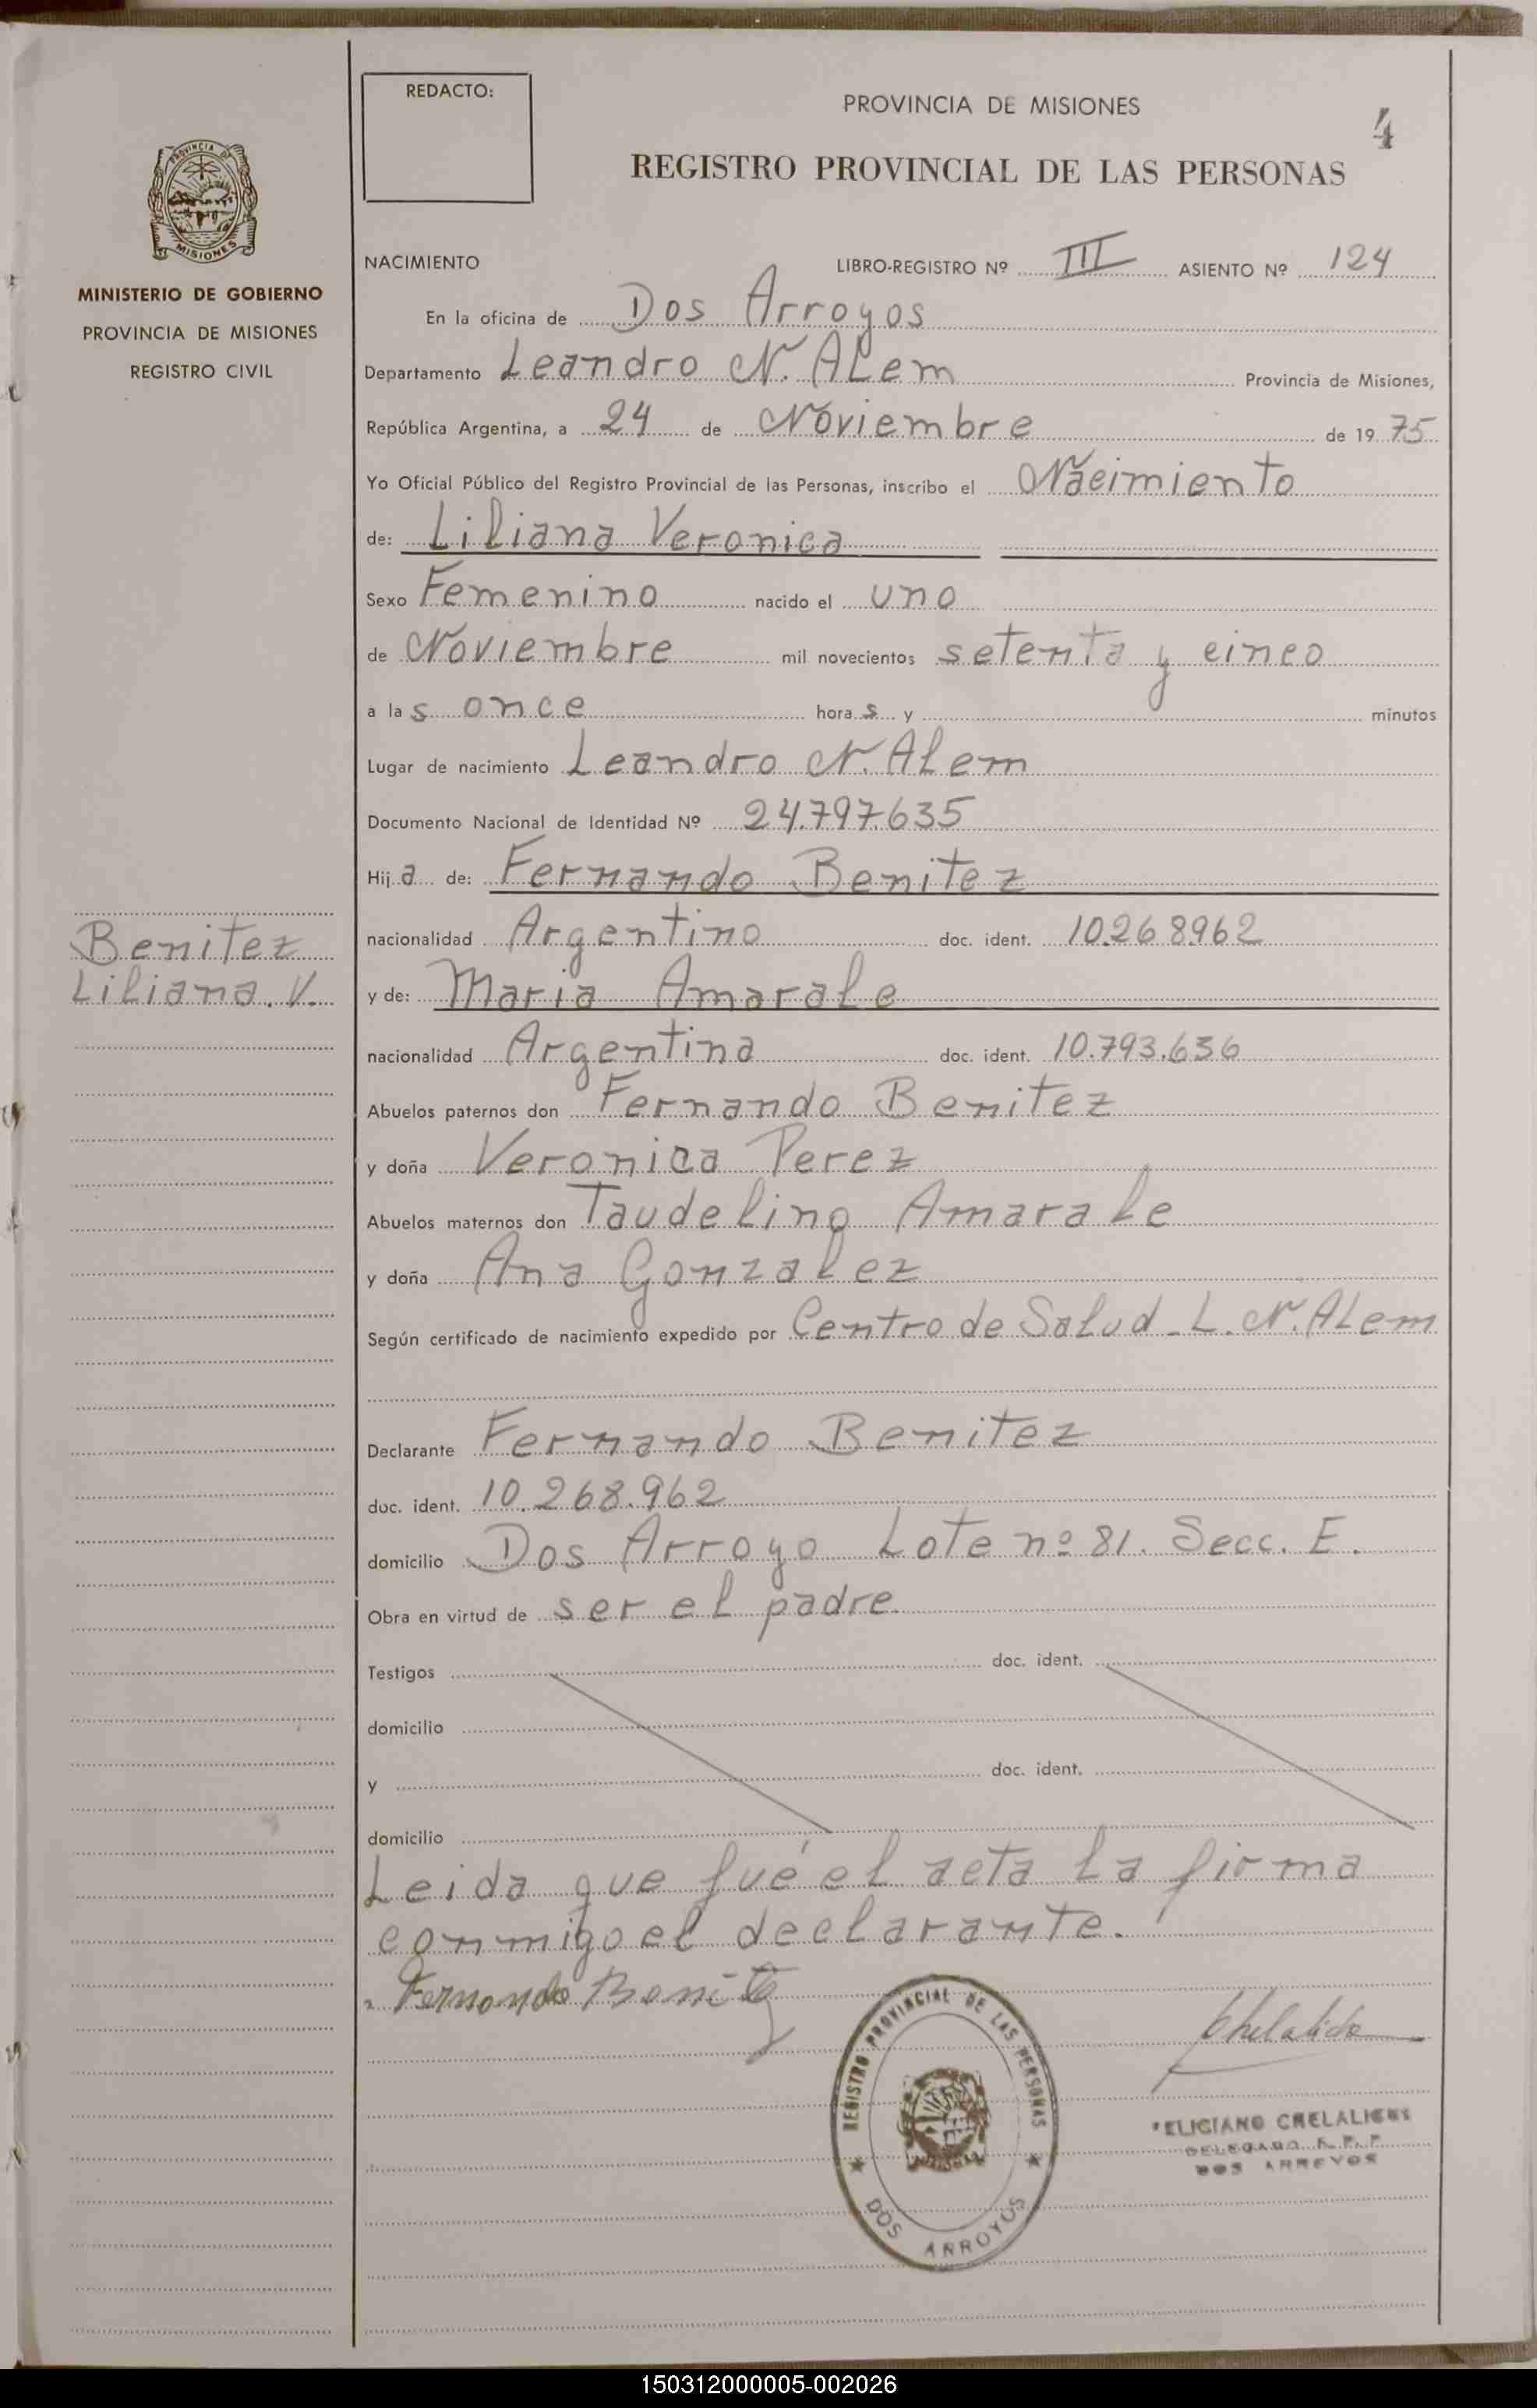 REDACTO:
PROVINCIA DE MISIONES
4
REGISTRO PROVINCIAL DE LAS PERSONAS
PROVINCIA DE
MISIONES
MINISTERIO DE GOBIERNO
PROVINCIA DE MISIONES
REGISTRO CIVIL
NACIMIENTO LIBRO-REGISTRO Nº III ASIENTO Nº 124
En la oficina de Dos Arroyos
Departamento Leandro N. ALem Provincia de Misiones,
República Argentina, a 24 de Noviembre de 1975
Yo Oficial Público del Registro Provincial de las Personas, inscribo el Nacimiento
de: Liliana Veronica
Sexo Femenino nacido el uno
de Noviembre mil novecientos setenta y cinco
a las once horas y minutos
Lugar de nacimiento Leandro N. Alem
Documento Nacional de Identidad Nº 24.797.635
Hija de: Fernando Benitez
Benitez
Liliana. V.
nacionalidad Argentino doc. ident. 10.268962
y de: Maria Amarale
nacionalidad Argentina doc. ident. 10.793.636
Abuelos paternos don Fernando Benitez
y doña Veronica Perez
Abuelos maternos don Taudelino Amarale
y doña Ana Gonzalez
Según certificado de nacimiento expedido por Centro de Salud - L. N. ALem
Declarante Fernando Benitez
doc. ident. 10.268.962
domicilio Dos Arroyo Lote nº 81. Secc. E.
Obra en virtud de ser el padre.
Testigos doc. ident.
domicilio
y doc. ident.
domicilio
Leida que fué el acta la firma
conmigo el declarante.
Fernando Benitez
REGISTRO PROVINCIAL DE LAS PERSONAS
DOS ARROYOS
DELEGADO R. P. P.
DOS ARROYOS
150312000005-002026